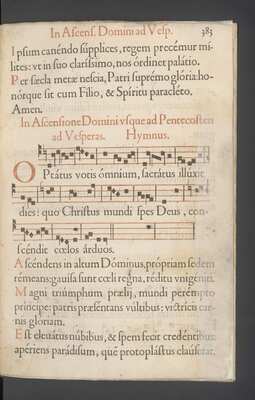 In Ascens. Domini ad Vesp. 383
Ipsum canẽndo supplices, regem precẽmur mi-
lites: vt in suo claríssimo, nos órdinet palátio.
Per sæcla metæ nescia, Patri suprémo glória: ho-
nórque sit cum Filio, & Spíritu paracléto.
Amen.
In Ascensione Domini vsque ad Pentecosten
ad Vesperas. Hymnus.
OPtátus votis ómnium, sacrátus illuxit
dies: quo Christus mundi spes Deus, con-
scéndit cœlos árduos.
Ascéndens in altum Dóminus, própriam ad sedem
rémeans: gauísa sunt cœli regna, réditu vnigeniti.
Magni triúmphum prælij, mundi perémpto
príncipe: patris præséntans vúltibus: victrícis car-
nis glóriam.
Est eleuátus núbibus, & spem fecit credéntibus:
apériens paradísum, quẽ protoplástus cláuserat.